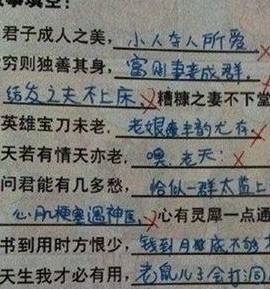 君子成人之美,小人夺人所爱
穷则独善其身,富则妻妾成群.
结发之夫不上床、糟糠之妻不下堂
英雄宝刀未老.老娘丰韵尤存.
天若有情天亦老.噢.老天:
问君能有几多愁,恰似一群太监上
心肌梗塞遇神医、心有灵犀一点通
书到用时方恨少,钱到月底不够
天生我才必有用,老鼠儿子会打洞